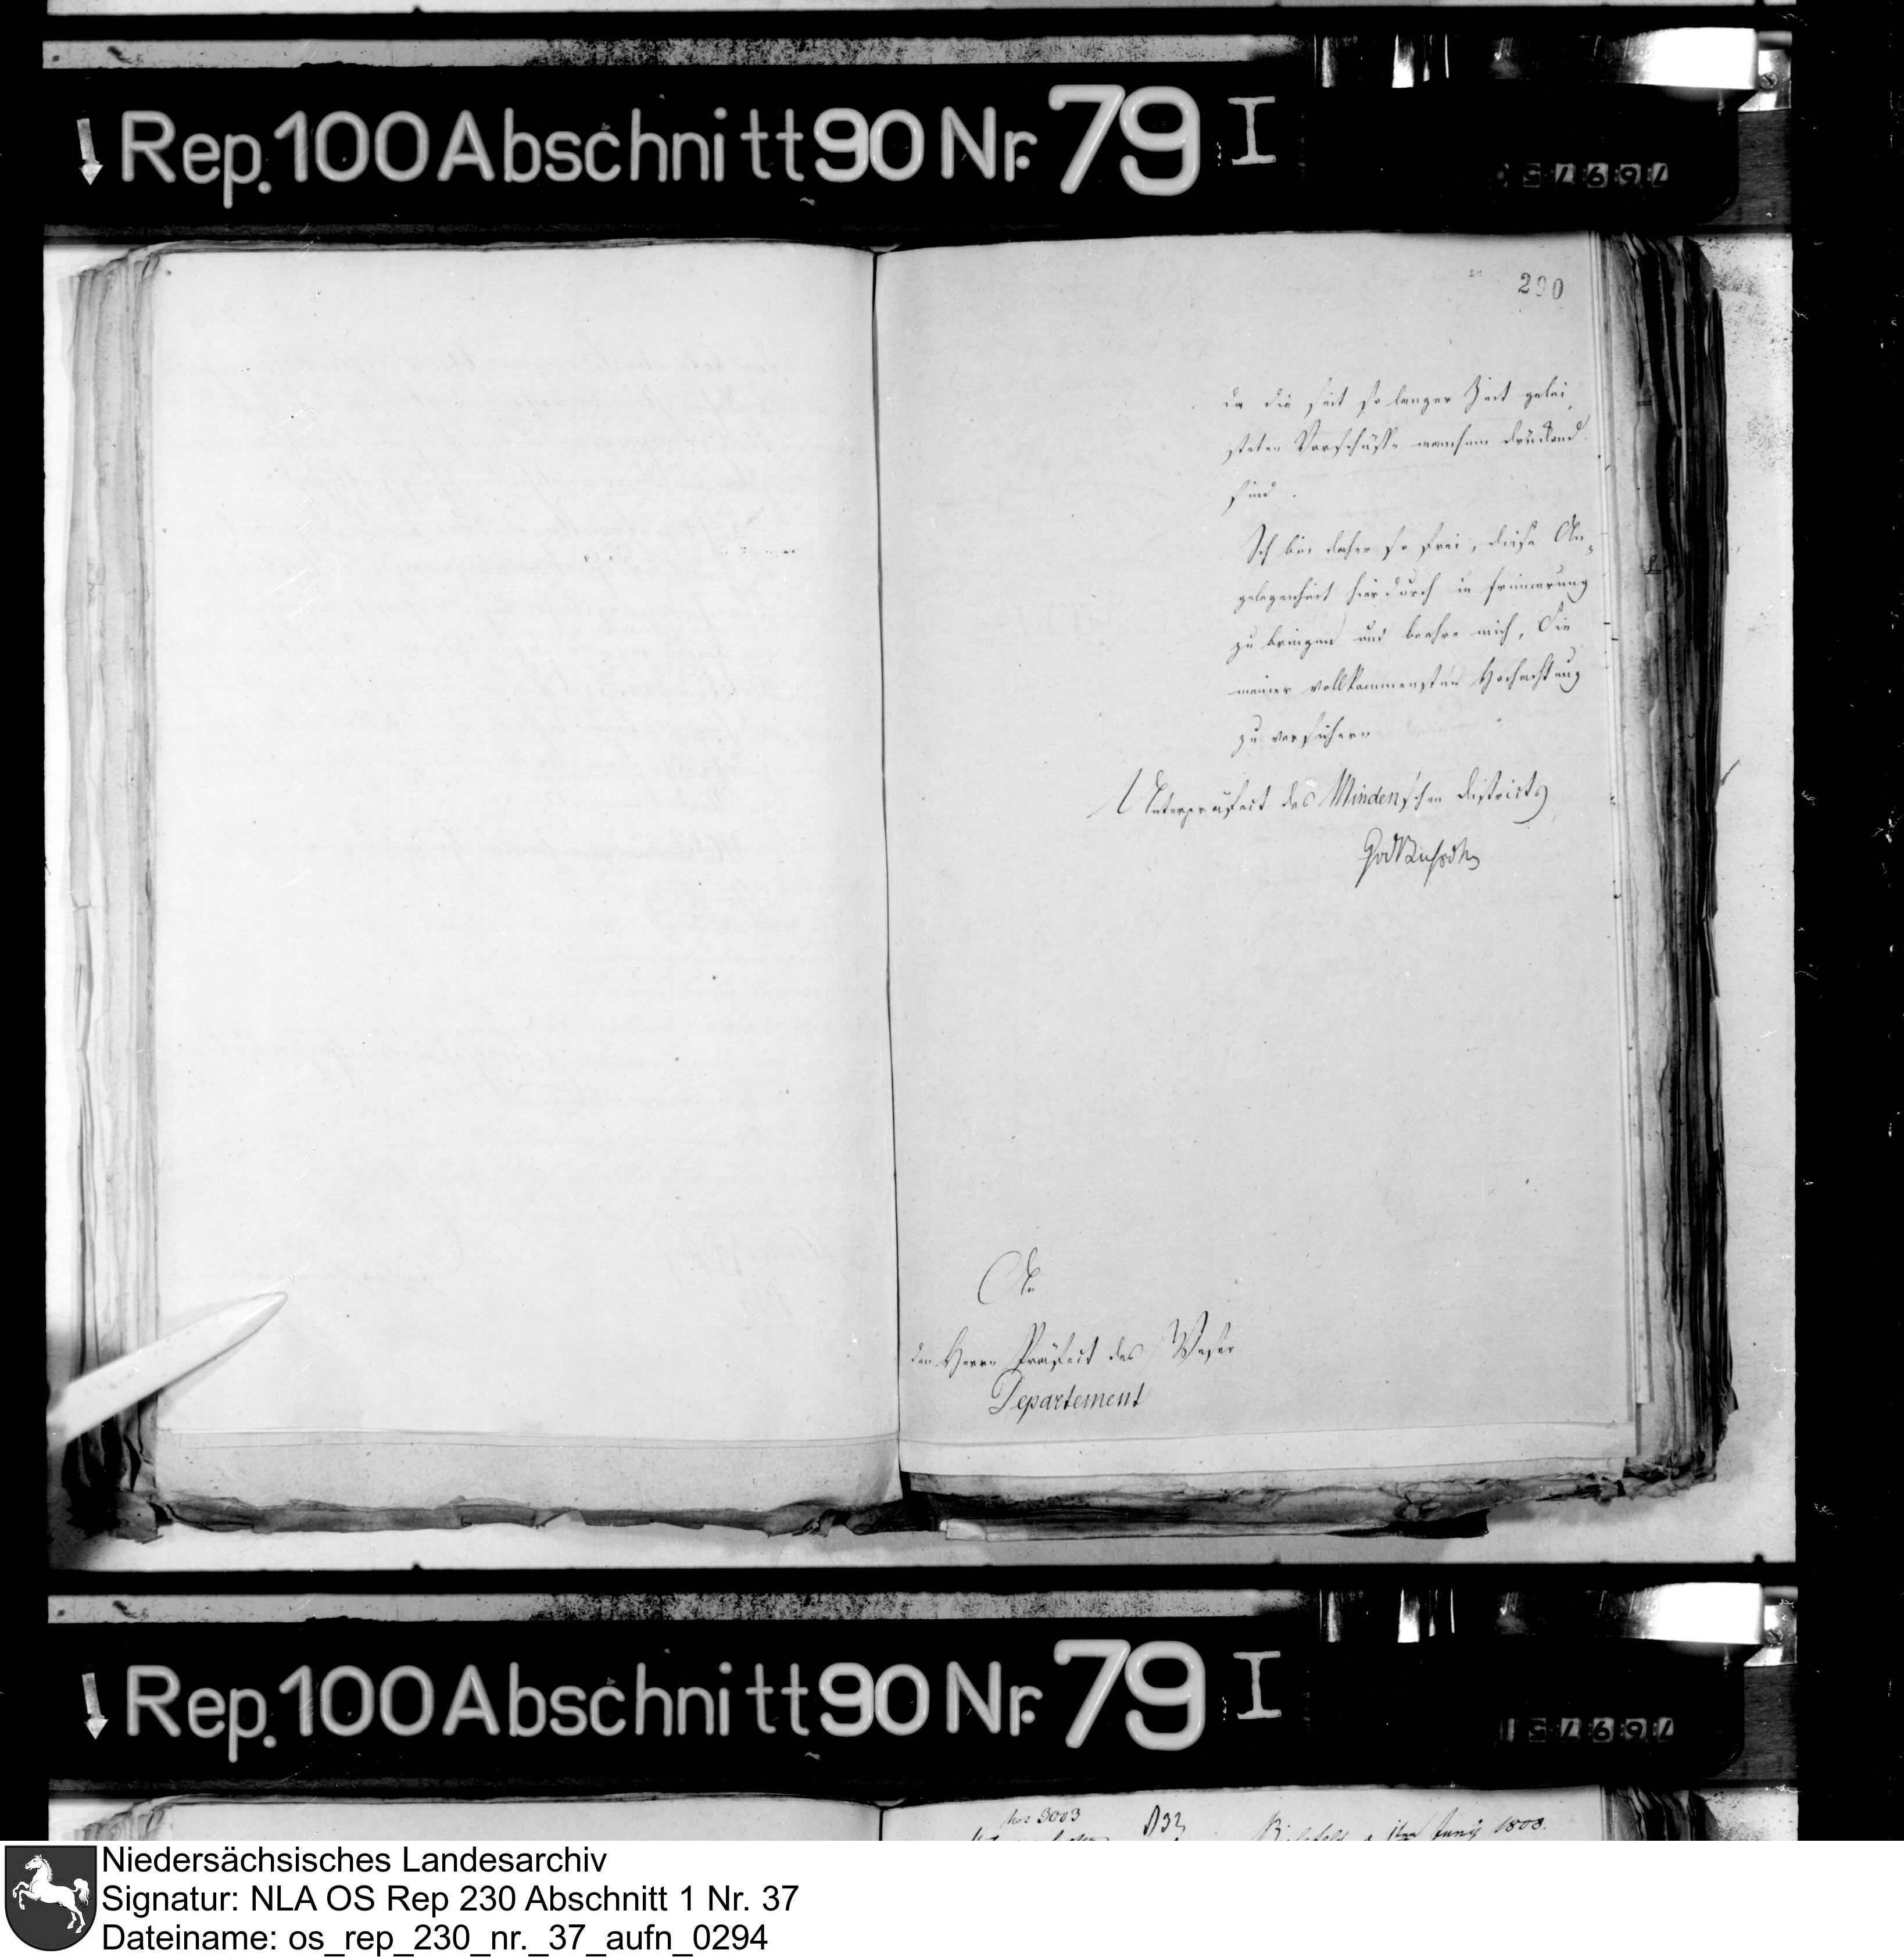 Rep. 100 Abschnitt 90 Nr. 79 I
290
da die seit so langer Zeit gelei-
steten Vorschüsse manchem drückend
sind.
Ich bin daher so frei, diese An-
gelegenheit hierdurch in Erinnerung
zu bringen und beehre mich, Sie
meiner vollkommensten Hochachtung
zu versichern
Unterpräfect des Minden'schen Districts
An
den Herrn Präfect des Weser
Departement
Rep. 100 Abschnitt 90 Nr. 79 I
3003
1808.
Niedersächsisches Landesarchiv
Signatur: NLA OS Rep 230 Abschnitt 1 Nr. 37
Dateiname: os_rep_230_nr._37_aufn_0294